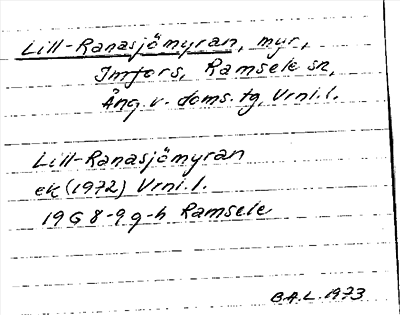 Lill-Ranasjömyran, myr,
Imfors, Ramsele sn,
Ång. v. doms. tg, Vrni. l.
Lill-Ranasjömyran
ek (1972) Vrni. l.
19G 8-9 g-h Ramsele
B.A.L. 1973